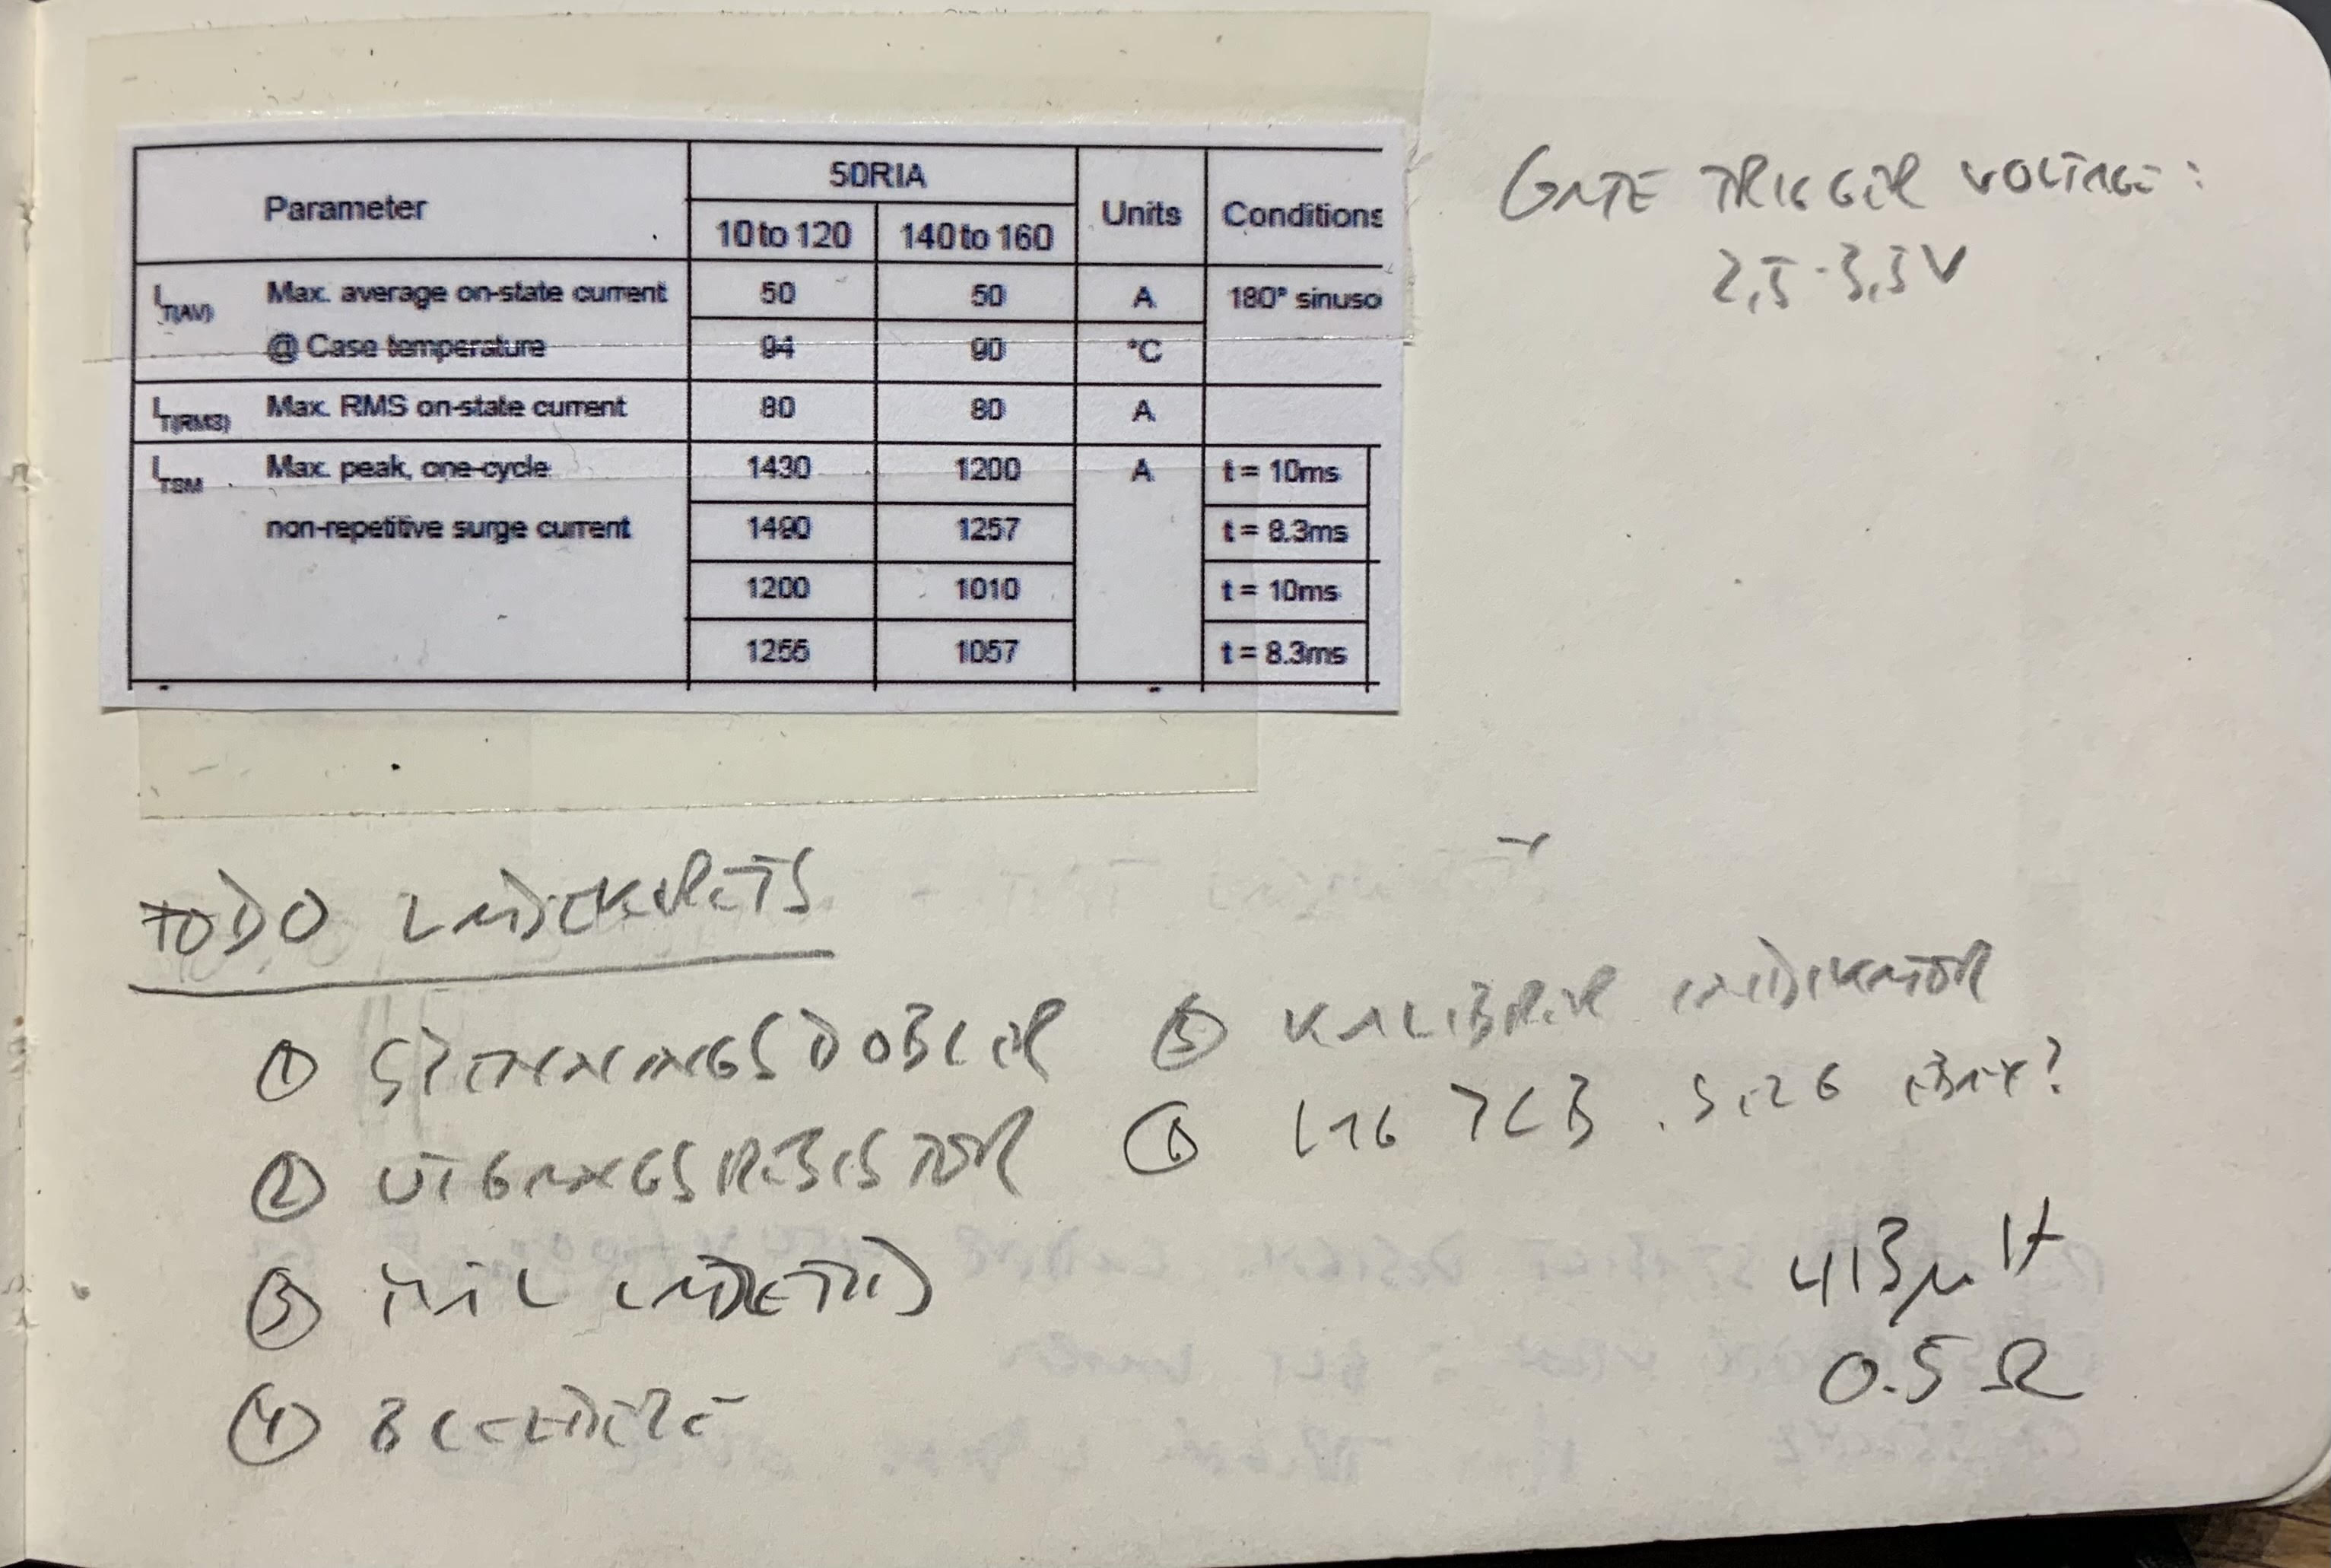 50RIA
Parameter Units Conditions
10 to 120 140 to 160
I T(AV) Max. average on-state current 50 50 A 180° sinuso
@ Case temperature 94 90 °C
I T(RMS) Max. RMS on-state current 80 80 A
I TSM Max. peak, one-cycle 1430 1200 A t = 10ms
non-repetitive surge current 1490 1257 t = 8.3ms
1200 1010 t = 10ms
1255 1057 t = 8.3ms
GATE TRIGGER VOLTAGE:
2,5-3,3V
TODO LADEKRETS
① SPENNINGSDOBLER
② UTGANGSRESISTOR
③ MÅL
④
⑤ KALIBRER INDIKATOR
⑥ LAG PCB.
413μH
0.5Ω